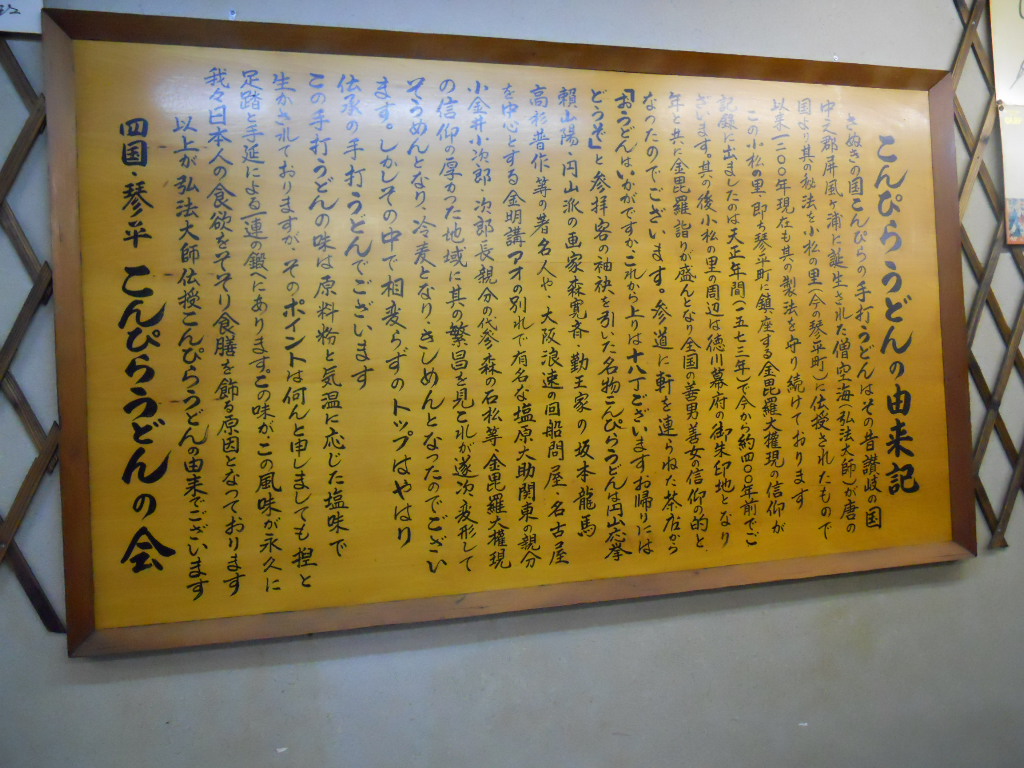 こんぴらうどんの由来記
さぬきの国こんぴらの手打うどんはその昔讃岐の国
中之郡屏風ヶ浦に誕生された僧空海(弘法大師)が唐の
国より其の秘法を小松の里(今の琴平町)に伝授されたもので
以来一二〇〇年現在も其の製法を守り続けております
この小松の里、即ち琴平町に鎮座する金毘羅大権現の信仰が
記録に出ましたのは天正年間(一五七三年)で今から約四〇〇年前でご
ざいます。其の後小松の里の周辺は徳川幕府の御朱印地となり
年と共に金毘羅詣りが盛んとなり全国の善男善女の信仰の的と
なったのでございます。参道に軒を連らねた茶店から
「おうどんはいかがですか、これから上りは十八丁ございます、お帰りには
どうぞ」と参拝客の袖袂を引いた名物こんぴらうどんは円山応挙
頼山陽・円山派の画家森寛斉・勤王家の坂本龍馬
高杉普作等の著名人や、大阪浪速の回船問屋・名古屋
を中心とする金明講アオの別れで有名な塩原大助関東の親分
小金井小次郎・次郎長親分の代参・森の石松等・金毘羅大権現
の信仰の厚かった地域に其の繁昌を見これが遂次変形して
そうめんとなり、冷麦となり、きしめんとなったのでござい
ます。しかしその中で相変らずのトップはやはり
伝承の手打うどんでございます
この手打うどんの味は原料粉と気温に応じた塩味で
生かされておりますが、そのポイントは何んと申しましても捏と
足踏と手延による一連の鍛へにあります。この味が、この風味が永久に
我々日本人の食欲をそそり食膳を飾る原因となっております
以上が弘法大師伝授こんぴらうどんの由来でございます
四国・琴平 こんぴらうどんの会